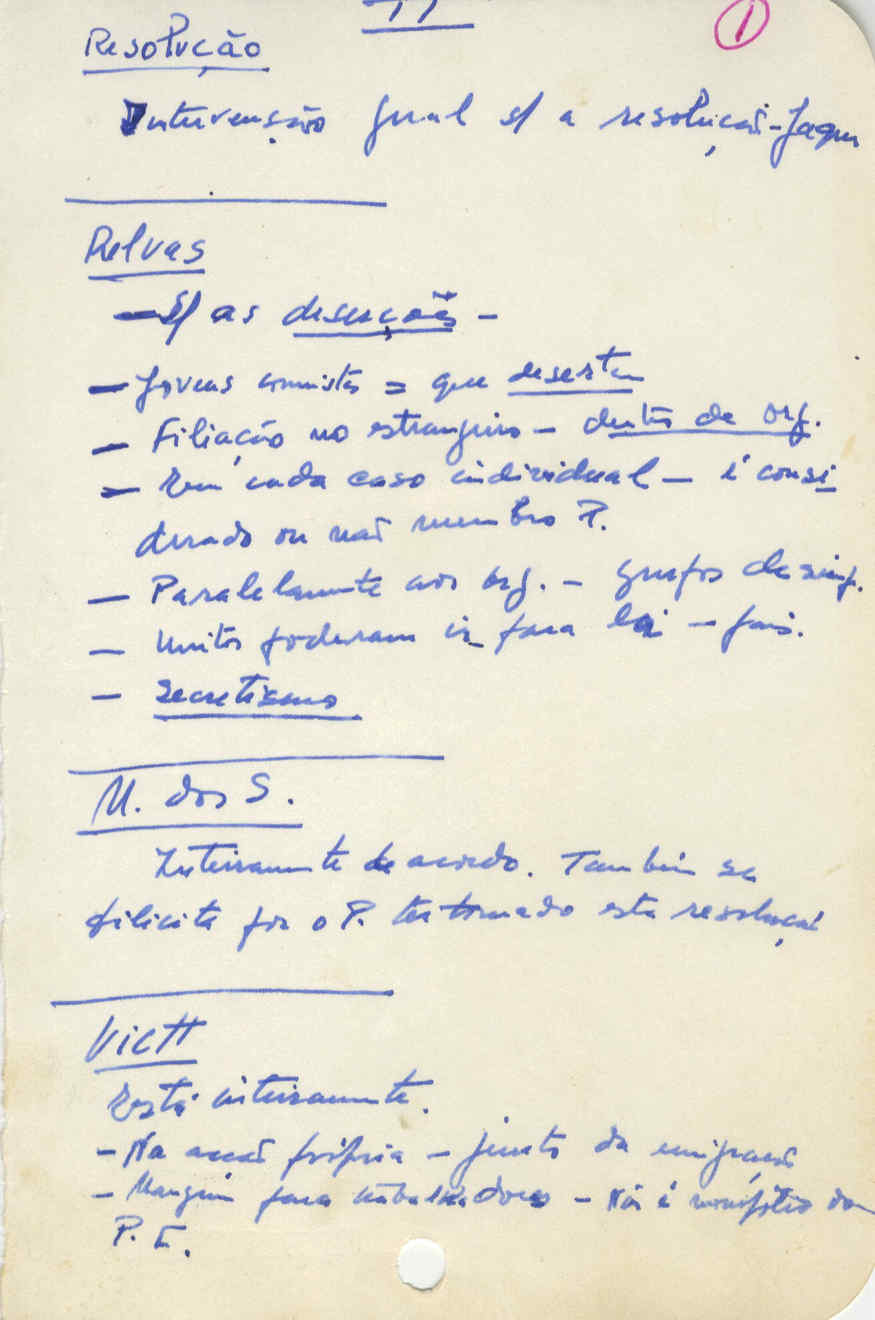 11
1
Resolução
Intervenção geral s/ a resolução - Jaque
Relvas
- S/ as deserções -
- Jovens comunistas = que desertem
- Filiação no estrangeiro - dentro de org.
- Em cada caso individual - é consi
derado ou não membro P.
- Paralelamente aos org. - grupos de simp.
- Muitos poderam ir para lá - país.
- Secretismo
M. dos S.
Inteiramente de acordo. Também se
felicita por o P. ter tomado esta resolução
Vict
Está inteiramente.
- Na acção própria - junto da emigração
- para trabalhadores - Não é monopólio do
P. C.